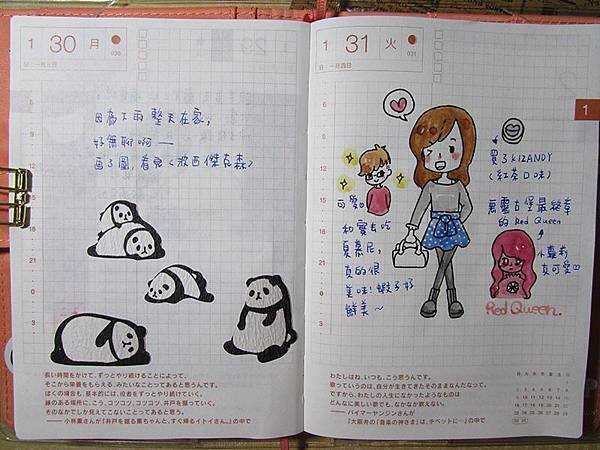 1 30 月
030
一月三日
因為下雨 整天在家,
好無聊啊——
画了圖,看完《波西傑克森》
長い時間をかけて、ずっとやり続けることによって、
そこから栄養をもらえる、みたいなことってあると思うんです。
ぼくの場合も、基本的には、役者をずっとやり続けていく。
縁のある場所に、こう、コツコツ、コツコツ、井戸を掘っていく。
そのなかでしか見えてこないことってあると思う。
——小林薫さんが『井戸を掘る薫ちゃんと、すぐ帰るイトイさん。』の中で
1 31 火
031
一月四日
1
買了KIZANDY
(紅茶口味)
惡靈古堡最終章
的 Red Queen
小蘿莉
真可愛
Red Queen..
可愛
和寶去吃
夏慕尼,
真的很
美味!蝦子好
鮮美~
わたしはね、いつも、こう思うんです。
歌っていうのは、自分が生きてきたそのままなんだなって。
ですから、わたしの人生になかったようなものは
どんなに美しい歌でも、なかなか歌えない。
——バイマーヤンジンさんが
『大阪弁の「音楽の神さま」は、チベットに…』の中で